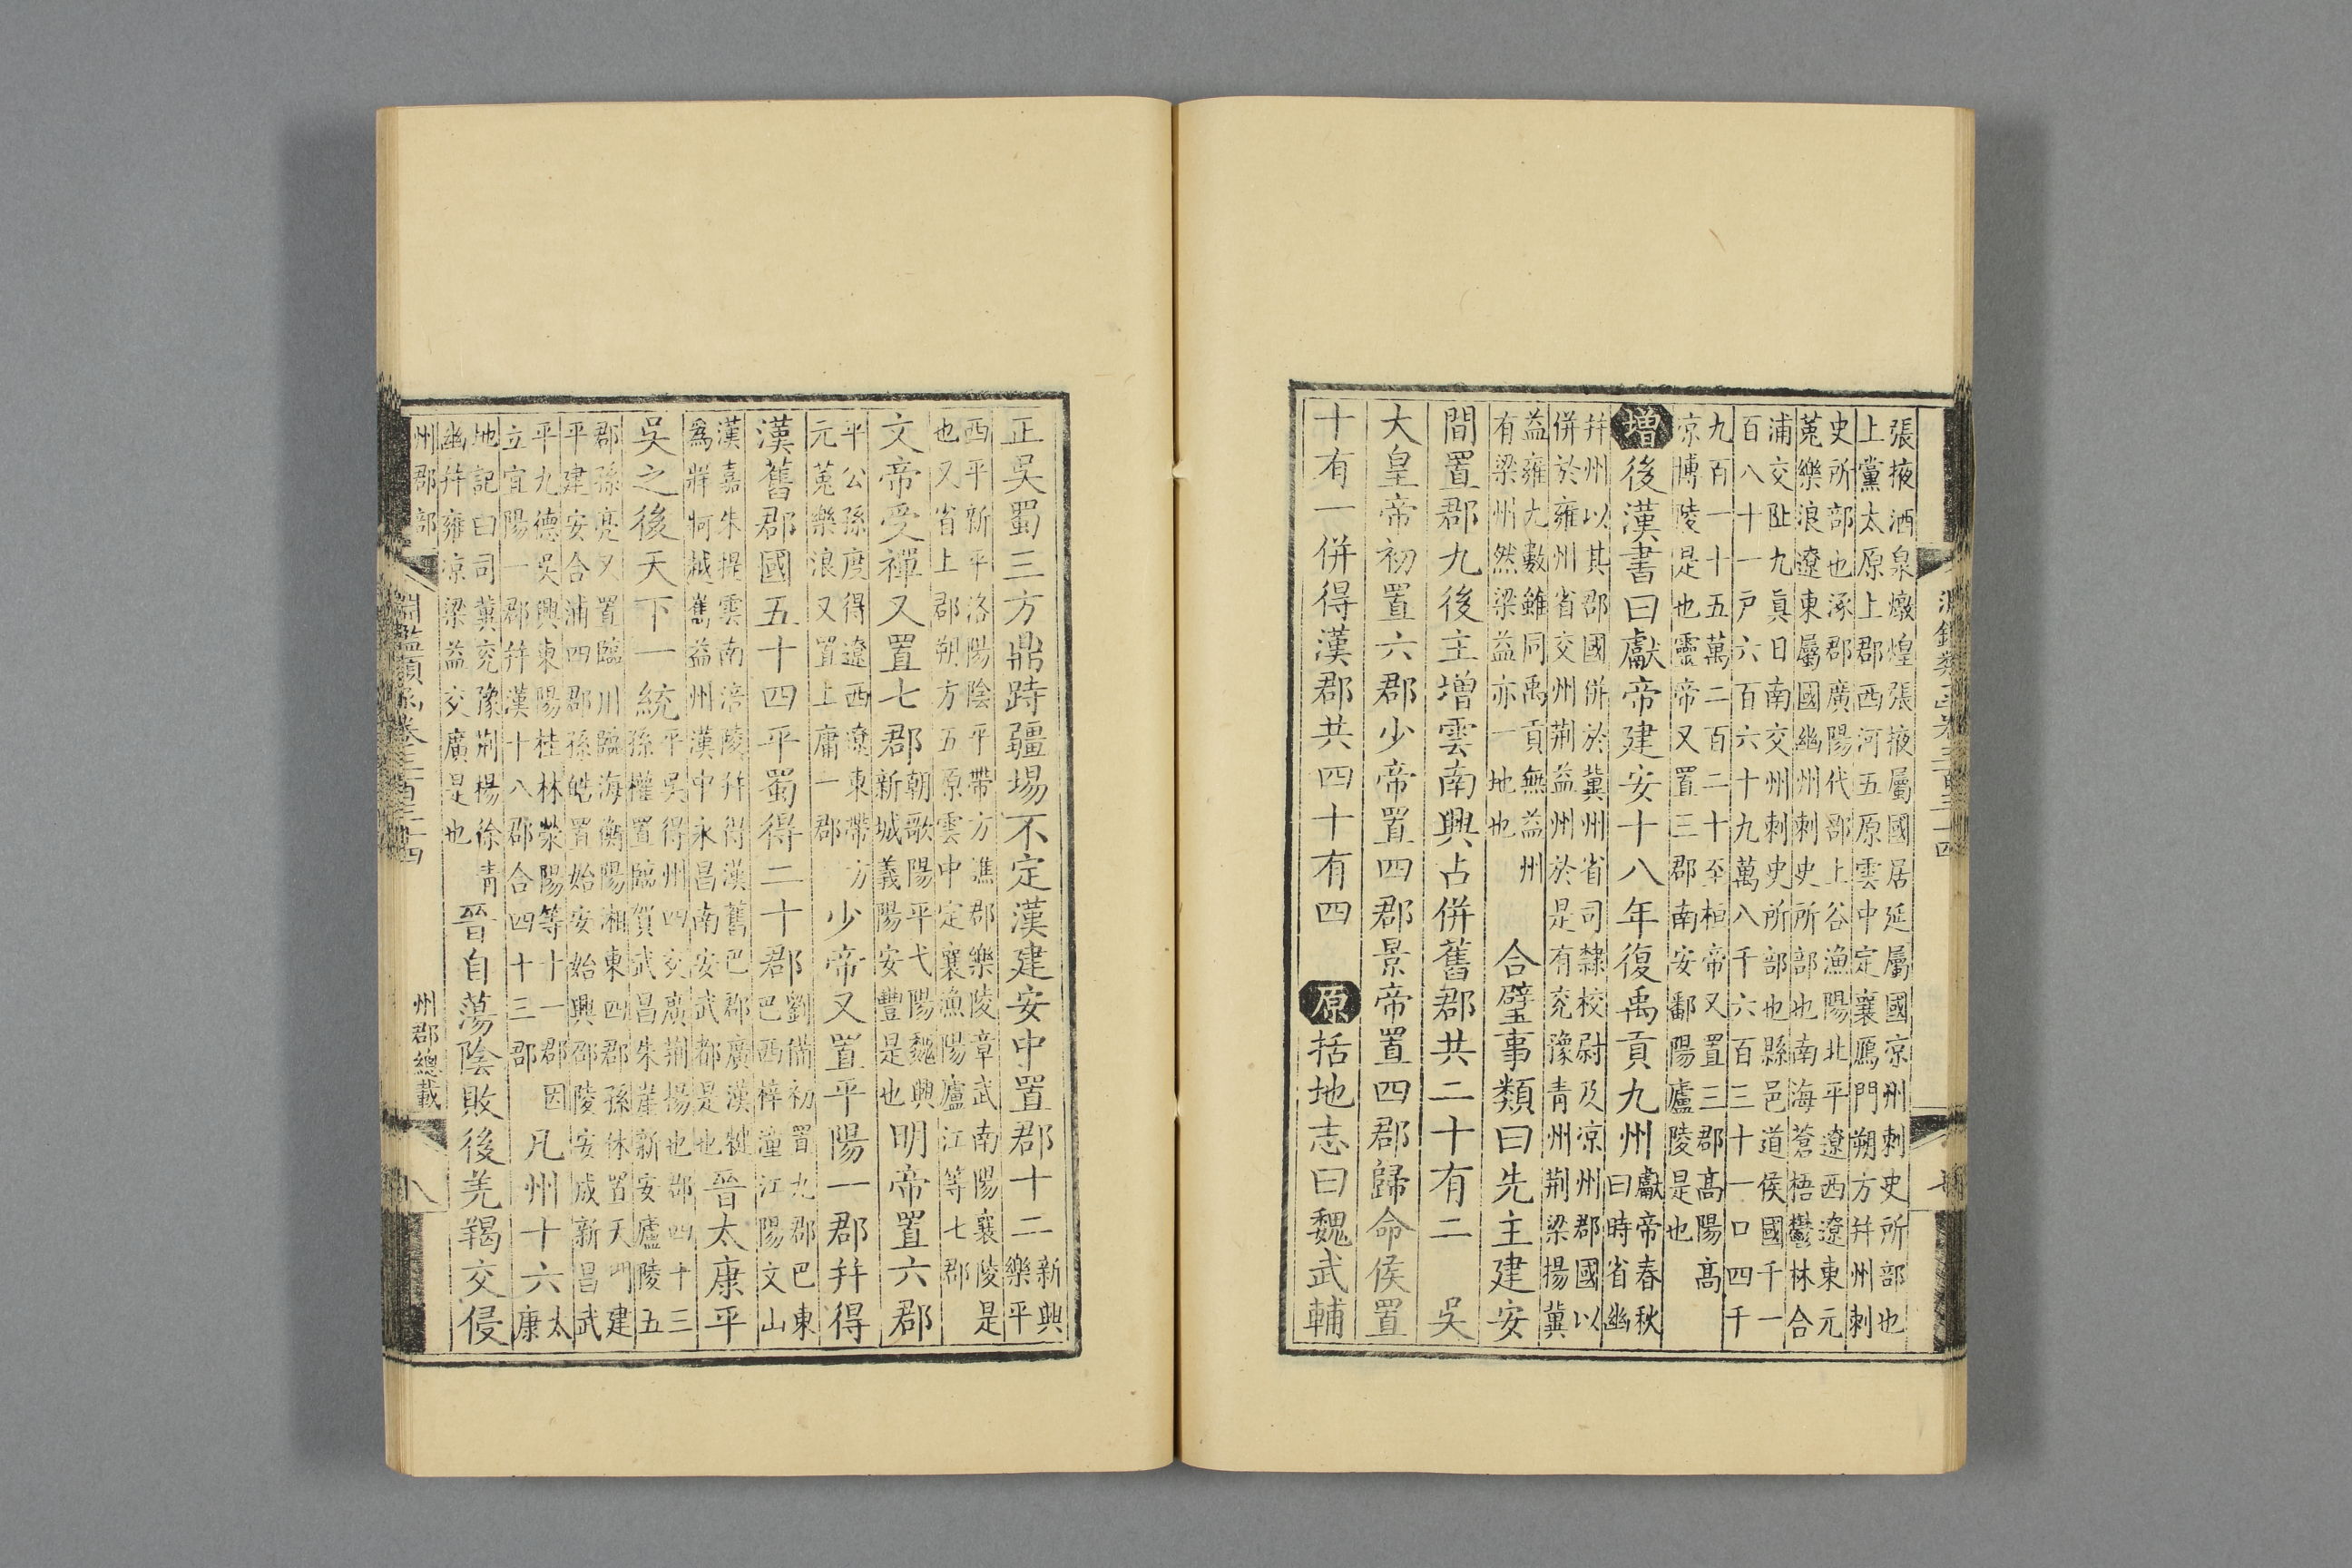 張掖酒泉燉煌張掖屬國居延屬國凉州刺史所部也
上黨太原上郡西河五原雲中定襄鴈門朔方幷州刺
史所部也涿郡廣陽代郡上谷漁陽北平遼西遼東元
菟樂浪遼東屬國幽州刺史所部也南海蒼梧鬱林合
浦交阯九眞日南交州刺史所部也縣邑道侯國千一
百八十一戸六百六十九萬八千六百三十一口四千
九百一十五萬二百二十至桓帝又置三郡高陽高
凉博陵是也靈帝又置三郡南安鄱陽廬陵是也
增後漢書曰獻帝建安十八年復禹貢九州
獻帝春秋
曰時省幽
幷州以其郡國併於冀州省司隸校尉及凉州郡國以
併於雍州省交州荆益州於是有兖豫青州荆梁揚冀
益雍九數雖同禹貢無益州
有梁州然梁益亦一地也
合璧事類曰先主建安
間置郡九後主增雲南興占併舊郡共二十有二 吳
大皇帝初置六郡少帝置四郡景帝置四郡歸命侯置
十有一併得漢郡共四十有四 原括地志曰魏武輔
正吳蜀三方鼎峙疆場不定漢建安中置郡十二
新興
樂平
西平新平洛陽陰平帶方譙郡樂陵章武南陽襄陵是
也又省上郡朔方五原雲中定襄漁陽廬江等七郡
文帝受禪又置七郡
朝歌陽平弋陽魏興
新城義陽安豐是也
明帝置六郡
平公孫度得遼西遼東帶方
元菟樂浪又置上庸一郡
少帝又置平陽一郡幷得
漢舊郡國五十四平蜀得二十郡
劉備初置九郡巴東
巴西梓潼江陽文山
漢嘉朱提雲南涪陵幷得漢舊巴郡廣漢犍
爲牂牁越嶲益州漢中永昌南安武都是也
晉太康平
吳之後天下一統
平吳得州四交廣荆揚也郡四十三
孫權置臨賀武昌朱崖新安廬陵五
郡孫亮又置臨川臨海衡陽湘東四郡孫休置天門建
平建安合浦四郡孫皓置始安始興邵陵安成新昌武
平九德吳興東陽桂林滎陽等十一郡因
立宜陽一郡幷漢十八郡合四十三郡
凡州十六
太
康
地記曰司冀兖豫荆楊徐青
幽幷雍凉梁益交廣是也
晉自蕩陰敗後羌羯交侵
州郡部
淵鑑類函卷三百三十四
州郡總載
八